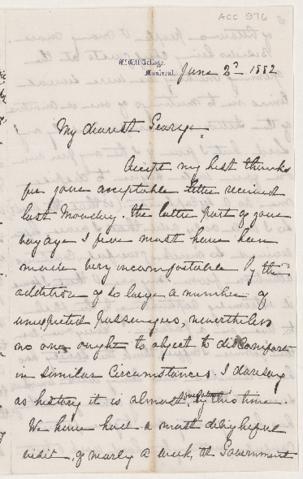 ACC 976
McGill College,
Montreal.
June 2d 1882
My dearest George,
Accept my best thanks
for your acceptable letter received
last Monday. the latter part of your
voyage I fear must have been
made very uncomfortable by the
addition of so large a number of
unexpected passengers, nevertheless
no one ought to object to discomforts
in similar circumstances. I daresay
as history it is almost by this time.
We have had a most delightful
visit, of nearly a week, the Government